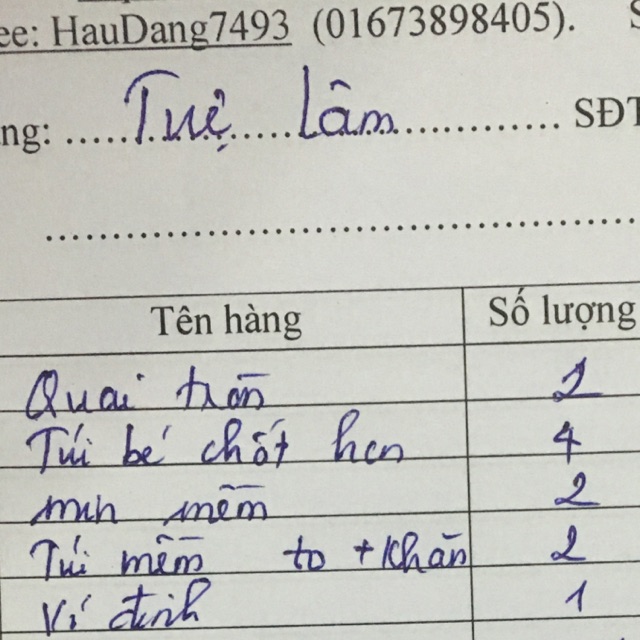 ee: HauDang7493 (01673898405). S
ng: Tuệ Lâm SĐT
Tên hàng Số lượng
Quai tròn 2
Túi bé chốt hcn 4
mềm 2
Túi mềm to + Khăn 2
Ví đinh 1